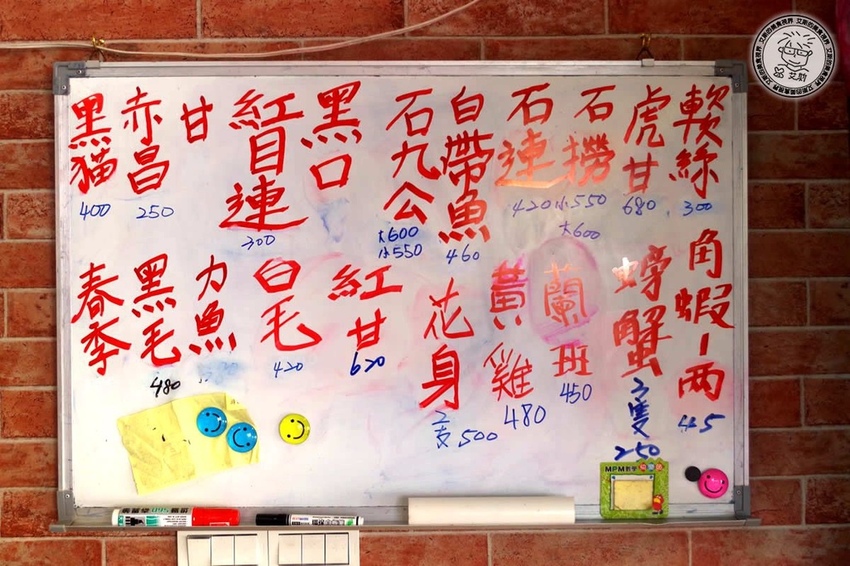 軟絲
300
虎甘
680
石撈
小550
大600
石連
420
白帶魚
460
石九公
大600
小550
黑口
紅目連
300
甘
赤昌
250
黑猫
400
角蝦1両
螃蟹
3隻
250
蘭班
450
黃雞
480
花身
2支500
紅甘
620
白毛
420
力魚
黑毛
480
春季
MPM數學
艾斯